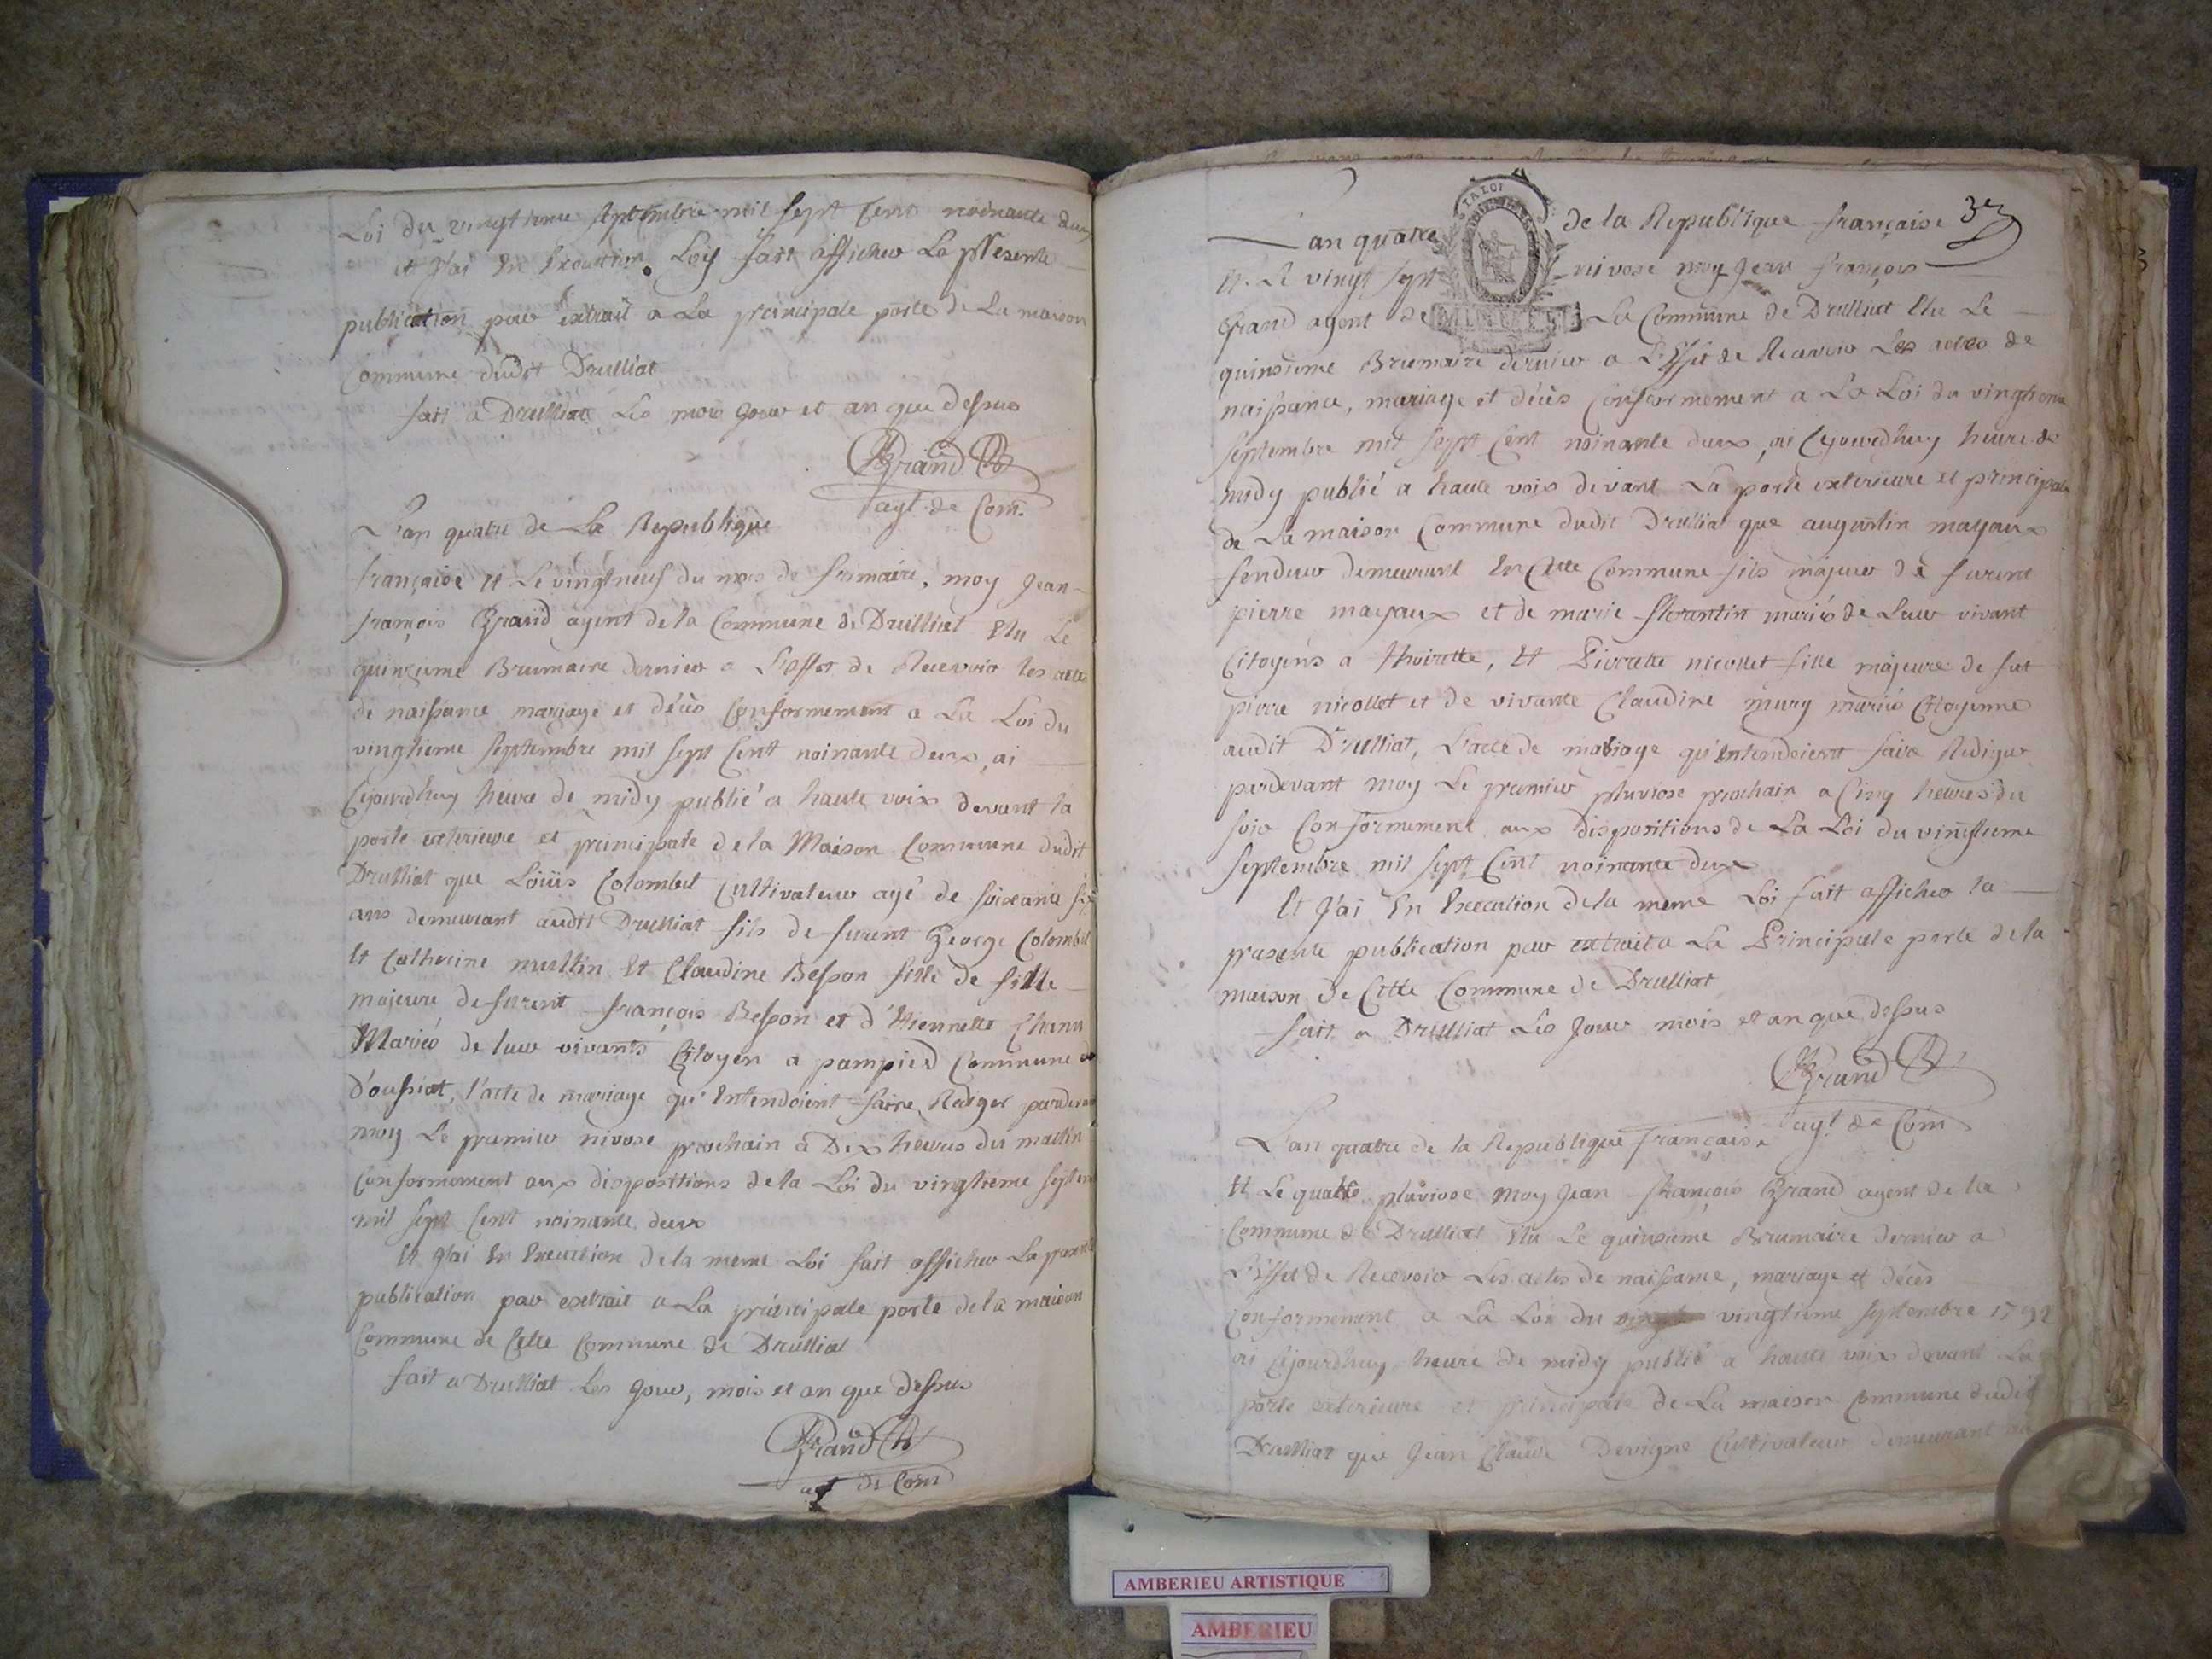 Loi du vingtieme septembre mil sept Cent noinante deux
et J'ai En Execution Loix fait afficher La presente
publication par extrait a La principale porte de La maison
Commune dudit Drulliat
fait a Drulliat Les mois Jour et an que dessus
Grand
agt de Com.
L'an quatre de La Republique
française Et Le vingt neuf du mois de frimaire, moy Jean
françois Grand agent de la Commune de Drulliat Elu Le
quinzieme Brumaire dernier a L'effet de Recevoir les actes
de naissance mariage et décès Conformement a La Loi du
vingtieme septembre mil sept Cent noinante deux, ai
Cejourdhuy heure de midy publié a haute voix devant la
porte exterieure et principale de la Maison Commune dudit
Drulliat que Loüis Colombet Cultivateur agé de soixante six
ans demeurant audit Drulliat fils de furent George Colombet
Et Catherine multin Et Claudine Besson fille de fille
majeure de furent françois Besson et d'Etiennette
Mariés de leur vivants Citoyen a pampied Commune
D'oussiat, l'acte de mariage qu'Entendoient faire Rediger pardevant
moy Le premier nivose prochain a Dix heures du mattin
Conformement aux dispositions de la Loi du vingtieme septem
mil sept Cent noinante deux
Et J'ai En Execution de la meme Loi fait afficher La presente
publication par extrait a La principale porte de la maison
Commune de Cette Commune de Drulliat
fait a Drulliat Les Jour, mois et an que dessus
Grand
agt de Com
LA LOI
MINUTES
37
L'an quatre de la Republique française
Et Le vingt sept nivose moy Jean françois
Grand agent de La Commune de Drulliat Elu Le
quinzieme Brumaire dernier a L'Effet de Recevoir Les actes de
naissance, mariage et décès Conformement a La Loi du vingtieme
septembre mil sept Cent noinante deux, ai Cejourdhuy heure de
midy publié a haute voix devant La porte exterieure et principale
de La maison Commune dudit Drulliat que augustin mayaux
fendeur demeurant En Cette Commune fils majeur de furent
pierre mayaux et de marie florantin mariés de Leur vivant
Citoyens a Thoirette, Et Pierrette nicollet fille majeure de fut
pierre nicollet et de vivante Claudine mury mariés Citoyenne
audit Drulliat, L'acte de mariage qu'Entendoient faire Rediger
pardevant moy Le premier pluviose prochain a Cinq heures du
soir Conformement aux dispositions de La Loi du vingtieme
septembre mil sept Cent noinante deux
Et J'ai En Execution de la meme Loi fait afficher la
presente publication par extrait a La Principale porte de la
maison de Cette Commune de Drulliat
fait a Drulliat Les Jour mois et an que dessus
Grand
agt de Com
L'an quatre de la Republique française
Et Le quatre pluviose moy Jean françois Grand agent de la
Commune de Drulliat Elu Le quinzieme Brumaire dernier a
L'Effet de Recevoir Les actes de naissance, mariage et décès
Conformement a La Loi du vingtieme septembre 1792
ai Cejourdhuy heure de midy publié a haute voix devant La
porte exterieure et principale de La maison Commune dudit
Drulliat que Jean Claude Devigne Cultivateur demeurant au
AMBERIEU ARTISTIQUE
AMBERIEU